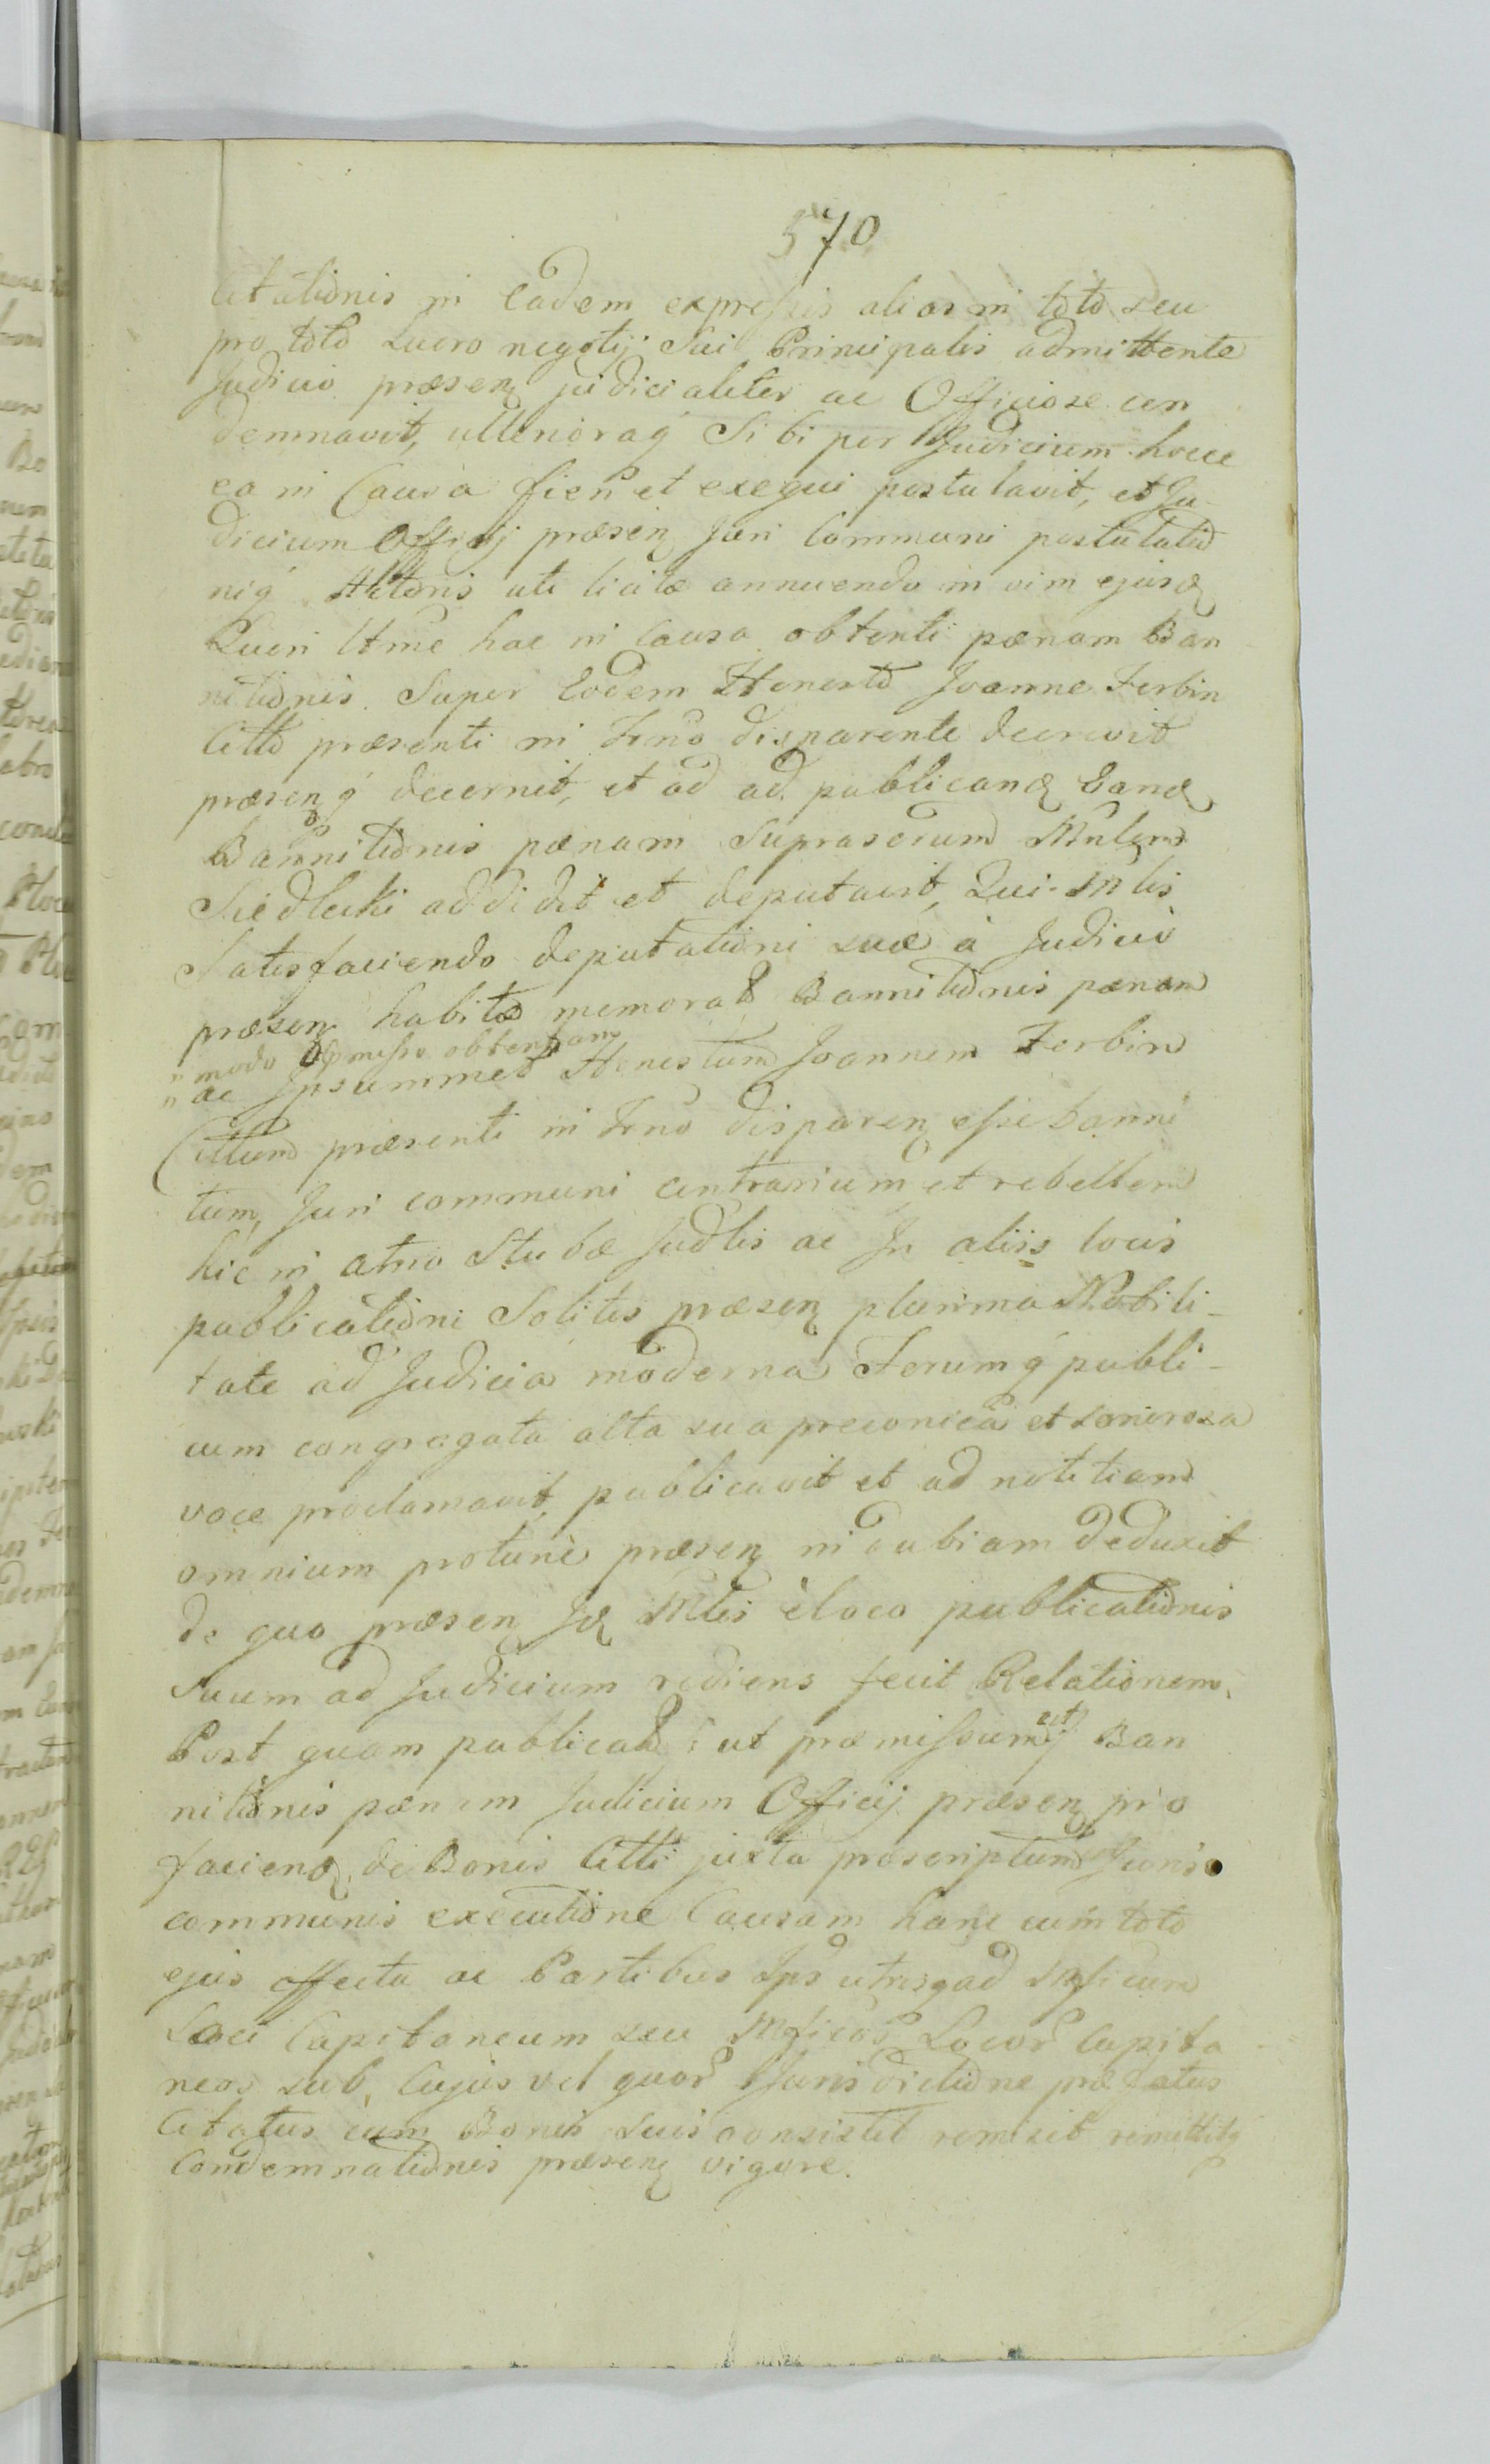 570
Citationis in Eadem expressis alias in toto seu
pro toto Lucro negotij Sui Principalis admittente
Judicio praesenz judicialiter ac Officiose con
demnavit, ulterioraq Sibi per Judicium hocce
ea in Causa fieri et exequi postulavit, et Ju-
dicium Officij praesenz Juri Communi postulatio
niq Actoris uti licitae annuendo in vim ejusd
Lucri ltme hac in Causa obtenti paenam Ban
nitionis Super Eodem Honesto Joanne Ferbin
Citto praesenti in Trno disparente decrevit
praesenzq decernit, et ad ad publicand Eand
Bannitionis paenam Suprascrum Mnlem
Siedlecki addidit et deputavit, Qui Mlis
Satisfaciendo deputationi suae à Judicio
praesenz habitae memorat Bannitionis paenam
modo praemisso obtentam
ac Ipsummet Honestum Joannem Ferbin
Cittum praesenti in Trno disparenz esse banni
tum, Juri communi contrarium et rebellem
hic in atrio Stubae Judlis ac In aliis locis
publicationi Solitis praesenz plurima Nobili-
tate ad Judicia moderna Forumq publi-
cum congregata alta sua preconica et sonorosa
voce proclamavit publicavit et ad notitiam
omnium protunc praesenz indubiam deduxit
de quo praesenz Id Mlis èloco publicationis
Suum ad Judicium rediens fecit Relationem.
Post quam publicat: ut praemissum est Ban
nitionis paenam Judicium Officij praesenz pro
faciend de Bonis Citti juxta praescriptum Juris
communis executione Causam hanc cum toto
ejus effectu ac Partibus Ips utrisq ad Mficum
Loci Capitaneum seu Mficos Locor Capita
neos sub Cujus vel quor Jurisdictione praefatus
Citatus cum Bonis Suis consistit remisit remittitq
Condemnationis praesenz vigore.